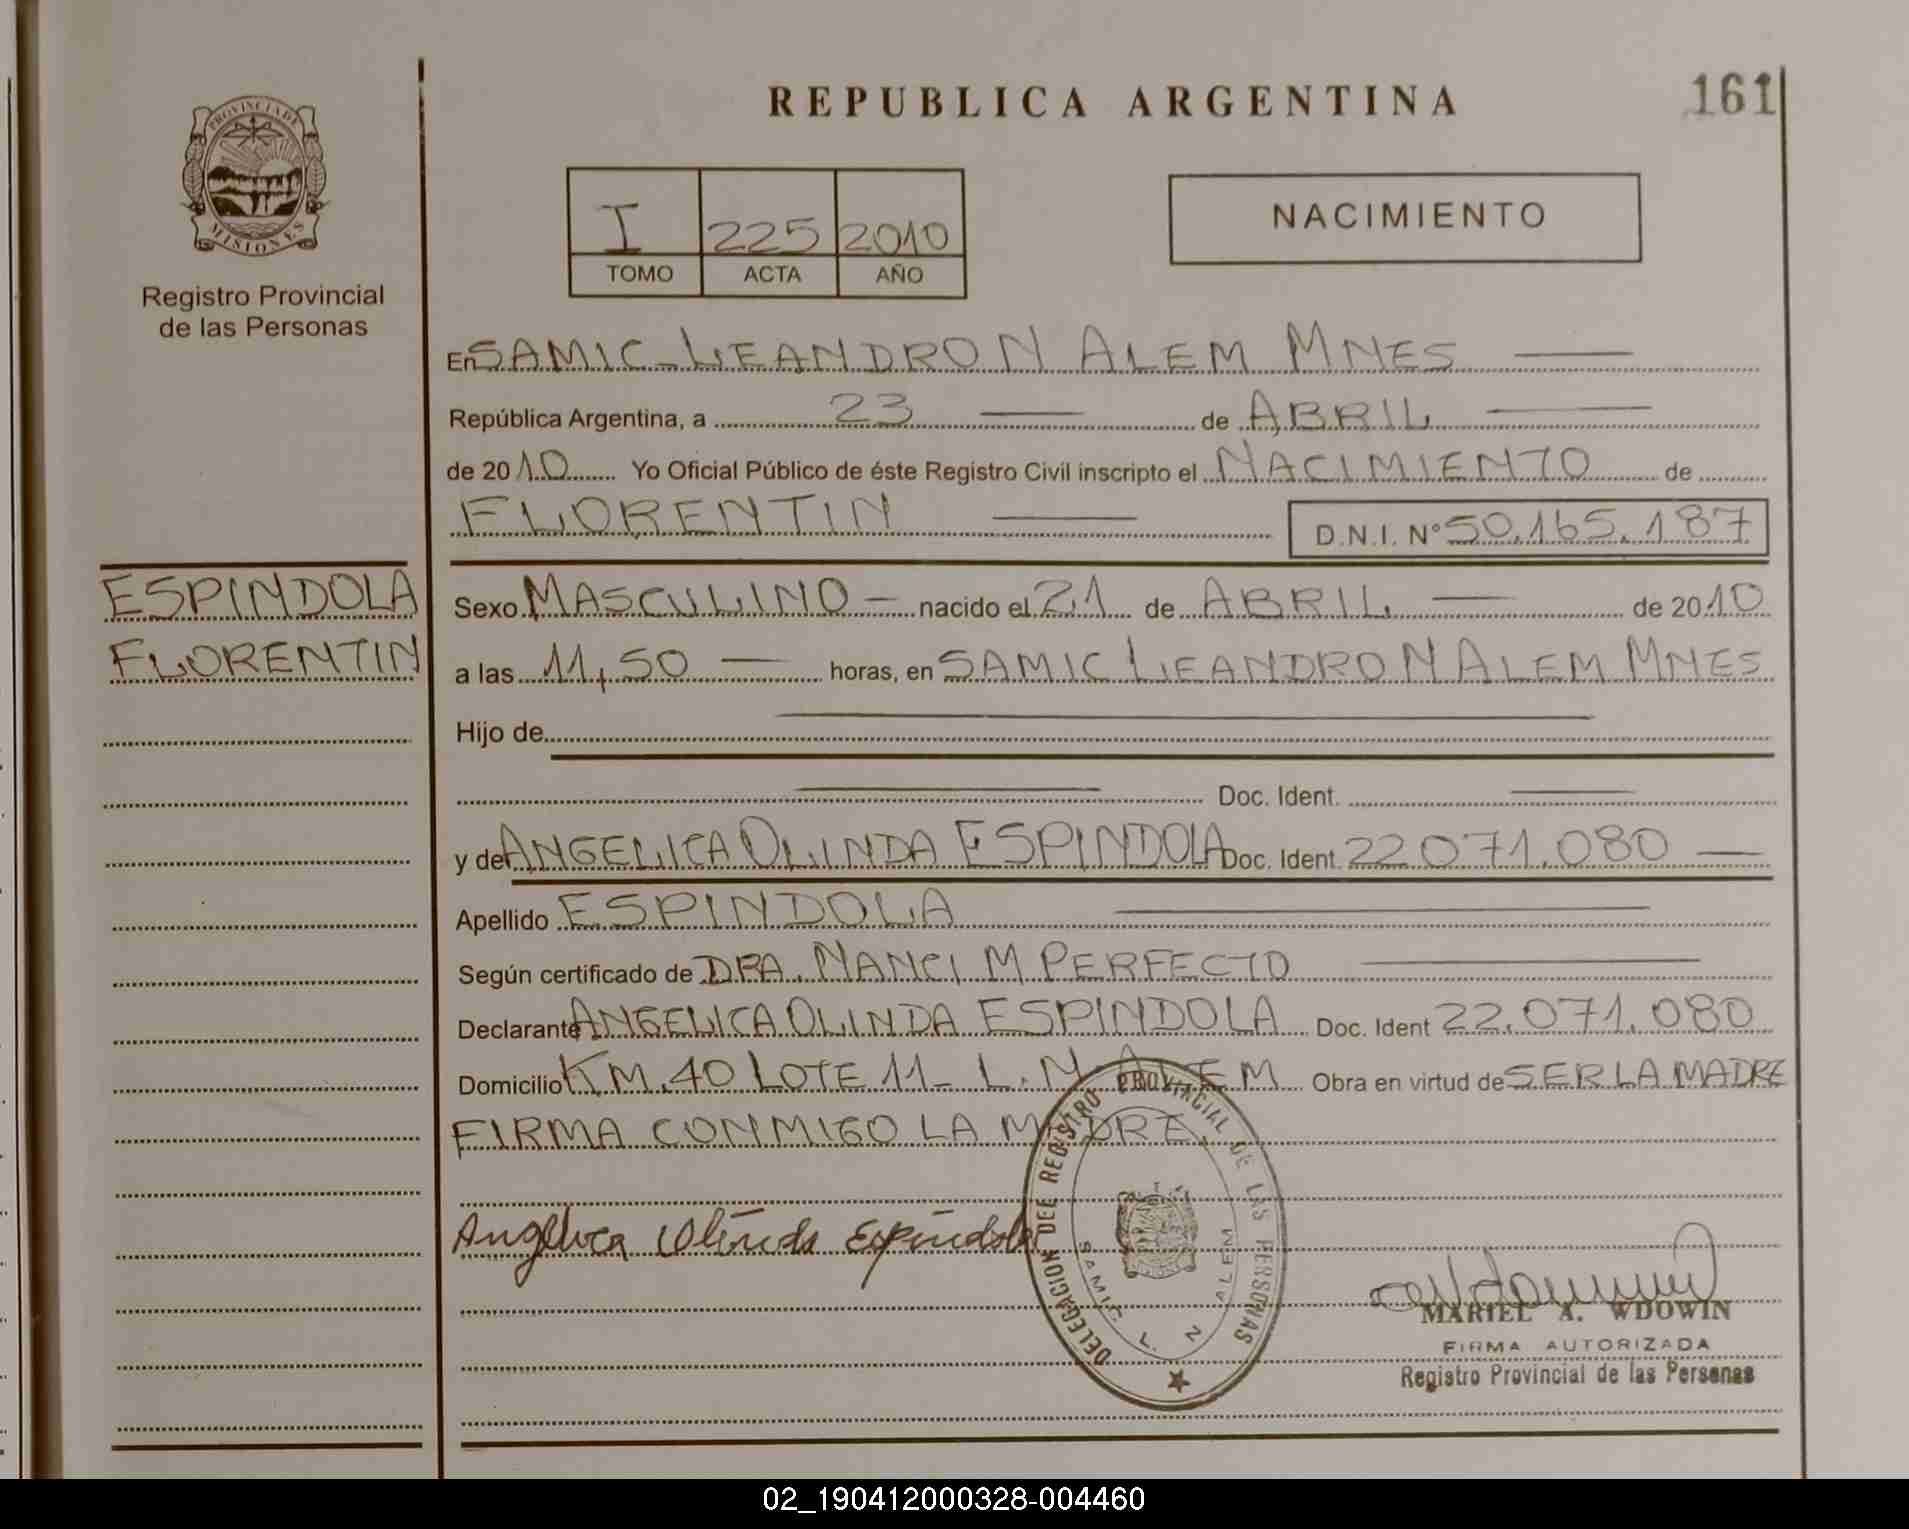 REPUBLICA ARGENTINA
161
PROVINCIA DE MISIONES
Registro Provincial
de las Personas
I 225 2010
TOMO ACTA AÑO
NACIMIENTO
En SAMIC-LEANDRO N ALEM MNES
República Argentina, a 23 de ABRIL
de 2010 Yo Oficial Público de éste Registro Civil inscripto el NACIMIENTO de
FLORENTIN D.N.I. Nº 50.165.187
ESPINDOLA
FLORENTIN
Sexo MASCULINO - nacido el 21 de ABRIL de 2010
a las 11,50 horas, en SAMIC LEANDRO N ALEM MNES
Hijo de
Doc. Ident.
y de ANGELICA OLINDA ESPINDOLA Doc. Ident. 22.071.080
Apellido ESPINDOLA
Según certificado de DRA. NANCI M PERFECTO
Declarante ANGELICA OLINDA ESPINDOLA Doc. Ident 22.071.080
Domicilio KM.40 LOTE 11- L.N ALEM Obra en virtud de SER LA MADRE
FIRMA CONMIGO LA MADRE.
Angelica Olinda Espindola
DELEGACION DEL REGISTRO PROVINCIAL DE LAS PERSONAS
SAMIC L. N ALEM
MARIEL A. WDOWIN
FIRMA AUTORIZADA
Registro Provincial de las Personas
02_190412000328-004460